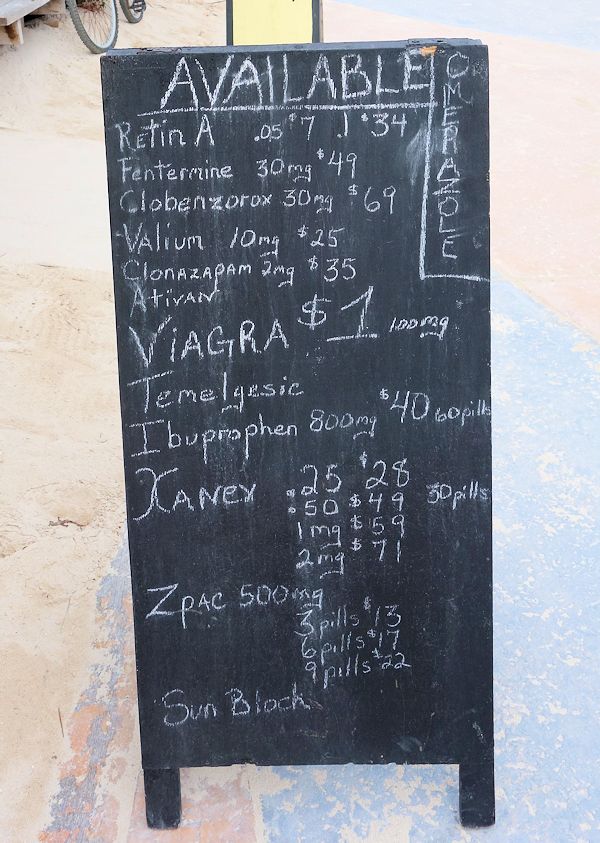 AVAILABLE
OMERAZOLE
Retin A .05 $7 .1 $34
Fentermine 30mg $49
Clobenzorox 30mg $69
Valium 10mg $25
Clonazapam 2mg $35
Ativan
ViAGRA $1 100mg
Temelgesic
Ibuprophen 800mg $40 60pills
Xanex .25 $28
.50 $49 30pills
1mg $59
2mg $71
Zpac 500mg
3pills $13
6pills $17
9pills $22
Sun Block